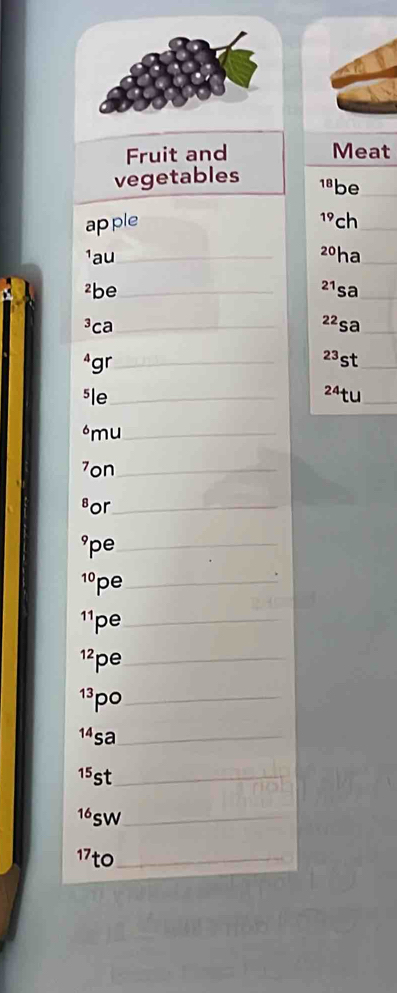 Fruit and
vegetables
apple
¹au
²be
³ca
⁴gr
⁵le
⁶mu
⁷on
⁸or
⁹pe
¹⁰pe
¹¹pe
¹²pe
¹³po
¹⁴sa
¹⁵st
¹⁶sw
¹⁷to
Meat
¹⁸be
¹⁹ch
²⁰ha
²¹sa
²²sa
²³st
²⁴tu